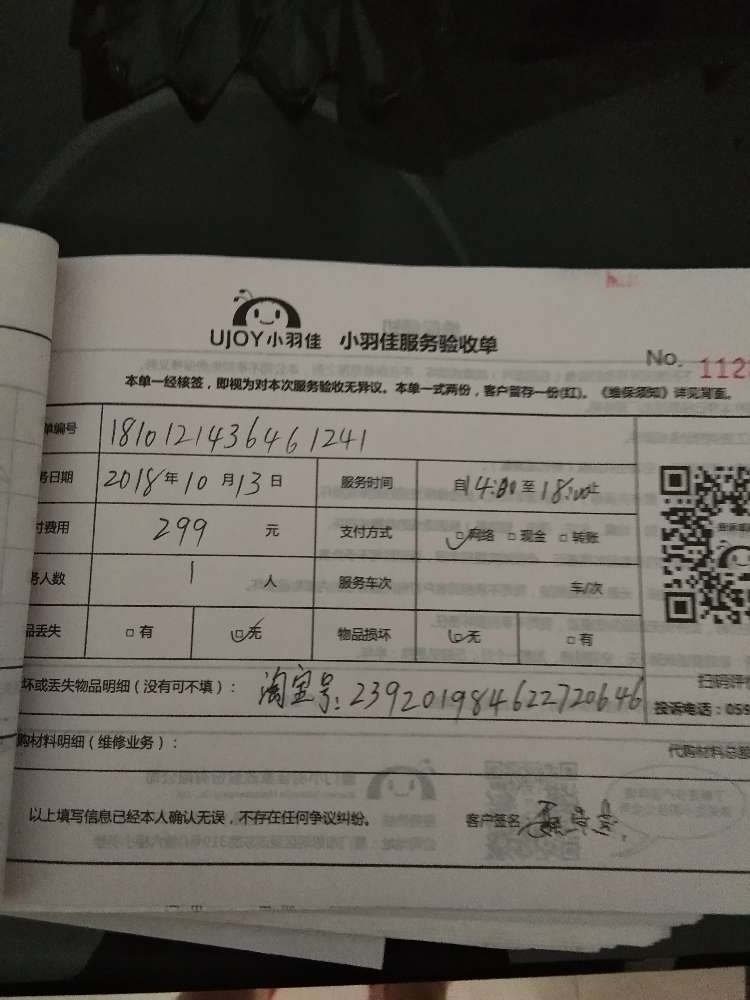 UJOY小羽佳 小羽佳服务验收单
No. 112
本单一经核签，即视为对本次服务验收无异议。本单一式两份，客户留存一份(红)。《维保须知》详见背面。
单编号 1810121436461241
务日期 2018年10月13日 服务时间 自14:00至18:00止
付费用 299 元 支付方式 □网络 □现金 □转账
务人数 1 人 服务车次 车/次
品丢失 □有 □无 物品损坏 □无 □有
坏或丢失物品明细（没有可不填）：淘宝号：239201984622720646
扫码评
投诉电话：059
购材料明细（维修业务）：
代购材料总
以上填写信息已经本人确认无误，不存在任何争议纠纷。 客户签名